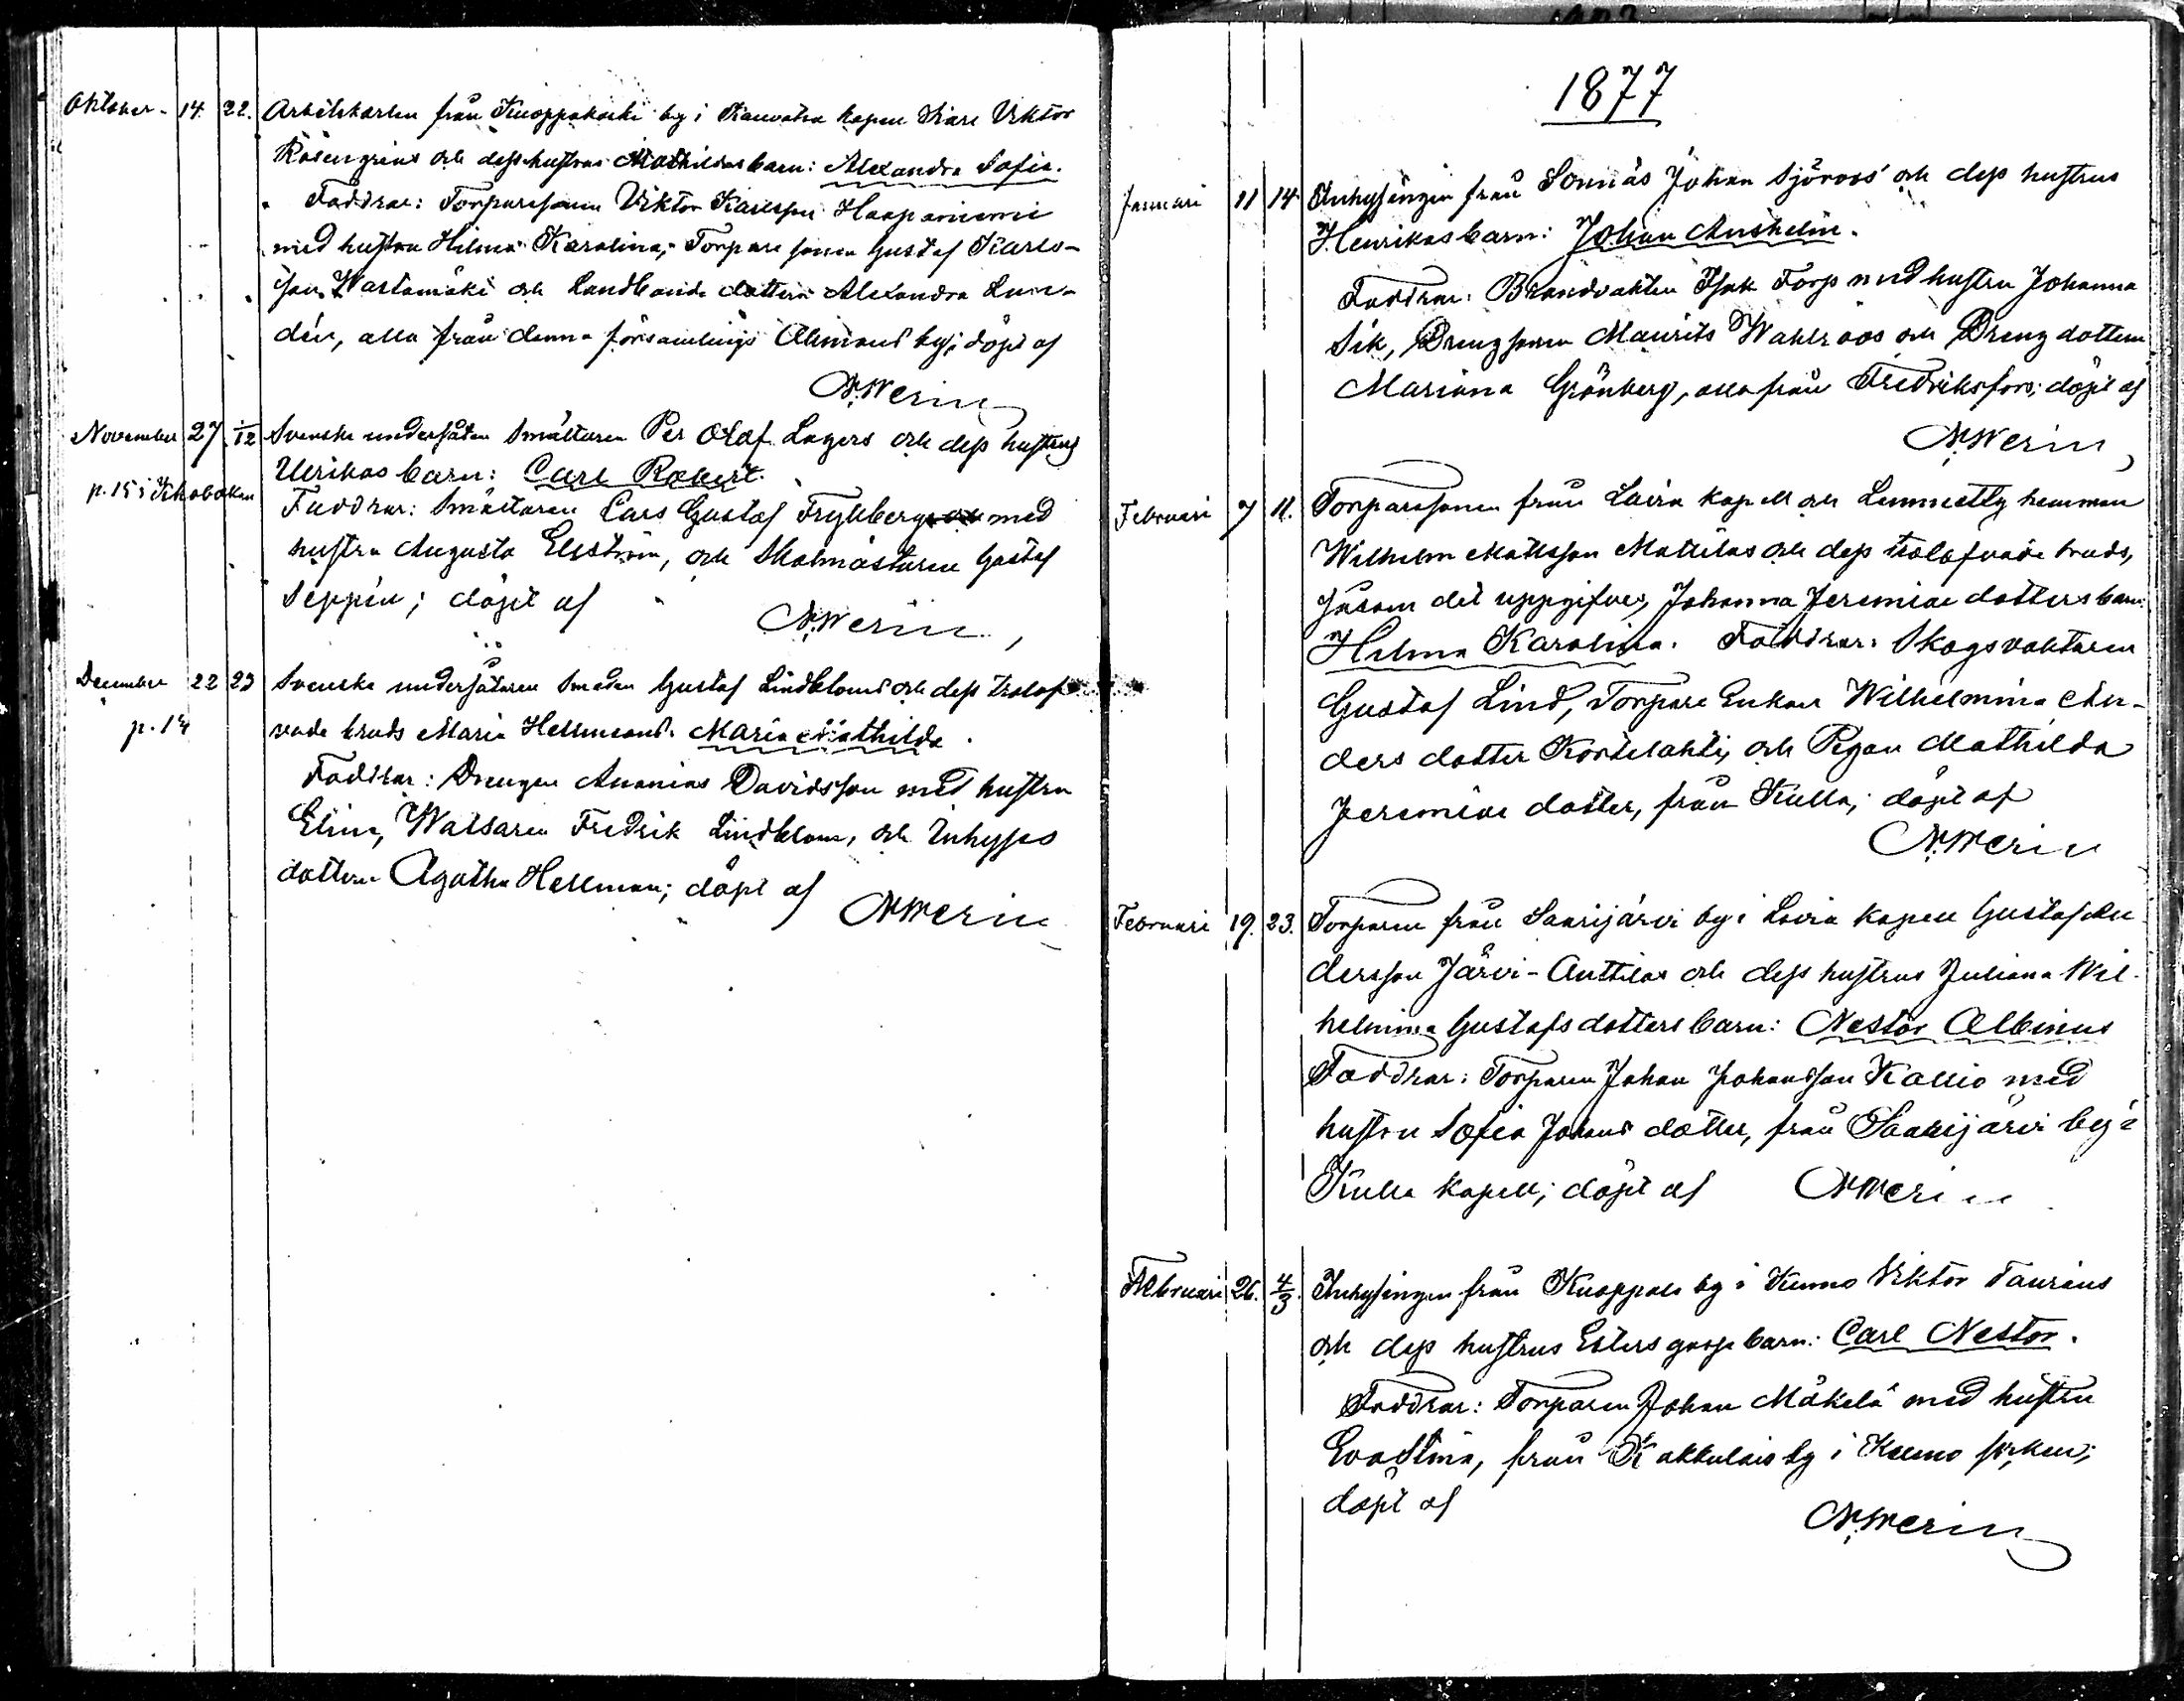 Oktober 14. 22. Arbetskarlen från Knoppakoski by i Kauvatsa kapell Karl Viktor
Rosengrens och dess hustrus Mathildas barn: Alexandra Sofia.
Faddrar: Torparesonen Viktor Karlsson Haapaniemi
med hustru Hilma Karolina, Torpare sonen Gustaf Karls-
son Wartamäki och Landbonde dottern Alexandra Lin-
dén, alla från denna församlings by; döpt af
N. Merin
November 27 1/12 Svenske undersåten Smältaren Per Olof Lagers och dess hustrus
Ulrikas barn: Carl Robert.
p. 15 i
Faddrar: Smältaren Lars Gustaf Frykberg med
hustru Augusta Ellström, och Skolmästaren Gustaf
Seppén; döpt af
N. Merin
December 22 23 Svenske undersåtaren Smeden Gustaf Lindbloms och dess trolof-
p. 14
vade bruds Maria Hellmans. Maria Mathilda.
Faddrar: Drengen Ananias Davidsson med hustru
Elin, Walsaren Fredrik Lindblom, och Inhyses
dottern Agatha Hellman; döpt af
N. Merin
1877
Januari 11 14 Inhysingen från Sonnäs Johan Sjöroos och dess hustrus
Henrikas barn: Johan Anshelm.
Faddrar: Brandvakten Isak Forss med hustru Johanna
Sik, Drengsonen Maurits Wahlroos och Dreng dottern
Mariana Grönberg, alla från Fredriksfors; döpt af
N. Merin
Februari 7 11. Torparesonen från Lavia kapell och hemman
Wilhelm Mattsson Mattilas och dess trolofvade bruds,
såsom det uppgifves, Johanna Jeremiae dotters barn:
Hilma Karolina. Faddrar: Skogsvaktaren
Gustaf Lind, Torpare Enkan Wilhelmina An-
ders dotter Kortelahti, och Pigan Mathilda
Jeremiae dotter, från Kulla; döpt af
N. Merin
Februari 19. 23. Torparen från Saarijärvi by i Lavia kapell Gustaf An-
dersson Järvi-Anttilas och dess hustrus Juliana Wil-
helmina Gustafs dotters barn: Nestor Albinus
Faddrar: Torparen Johan Johansson Kallio med
hustru Sofia Johans dotter, från Saarijärvi by i
Kulla kapell; döpt af N. Merin
Februari 26. 4/3. Inhysingen från by i Kumo Viktor Tauréns
och dess hustrus Esters barn: Carl Nestor.
Faddrar: Torparen Johan Mäkelä med hustru
Eva Stina, från Kakkulais by i Kumo socken;
döpt af
N. Merin